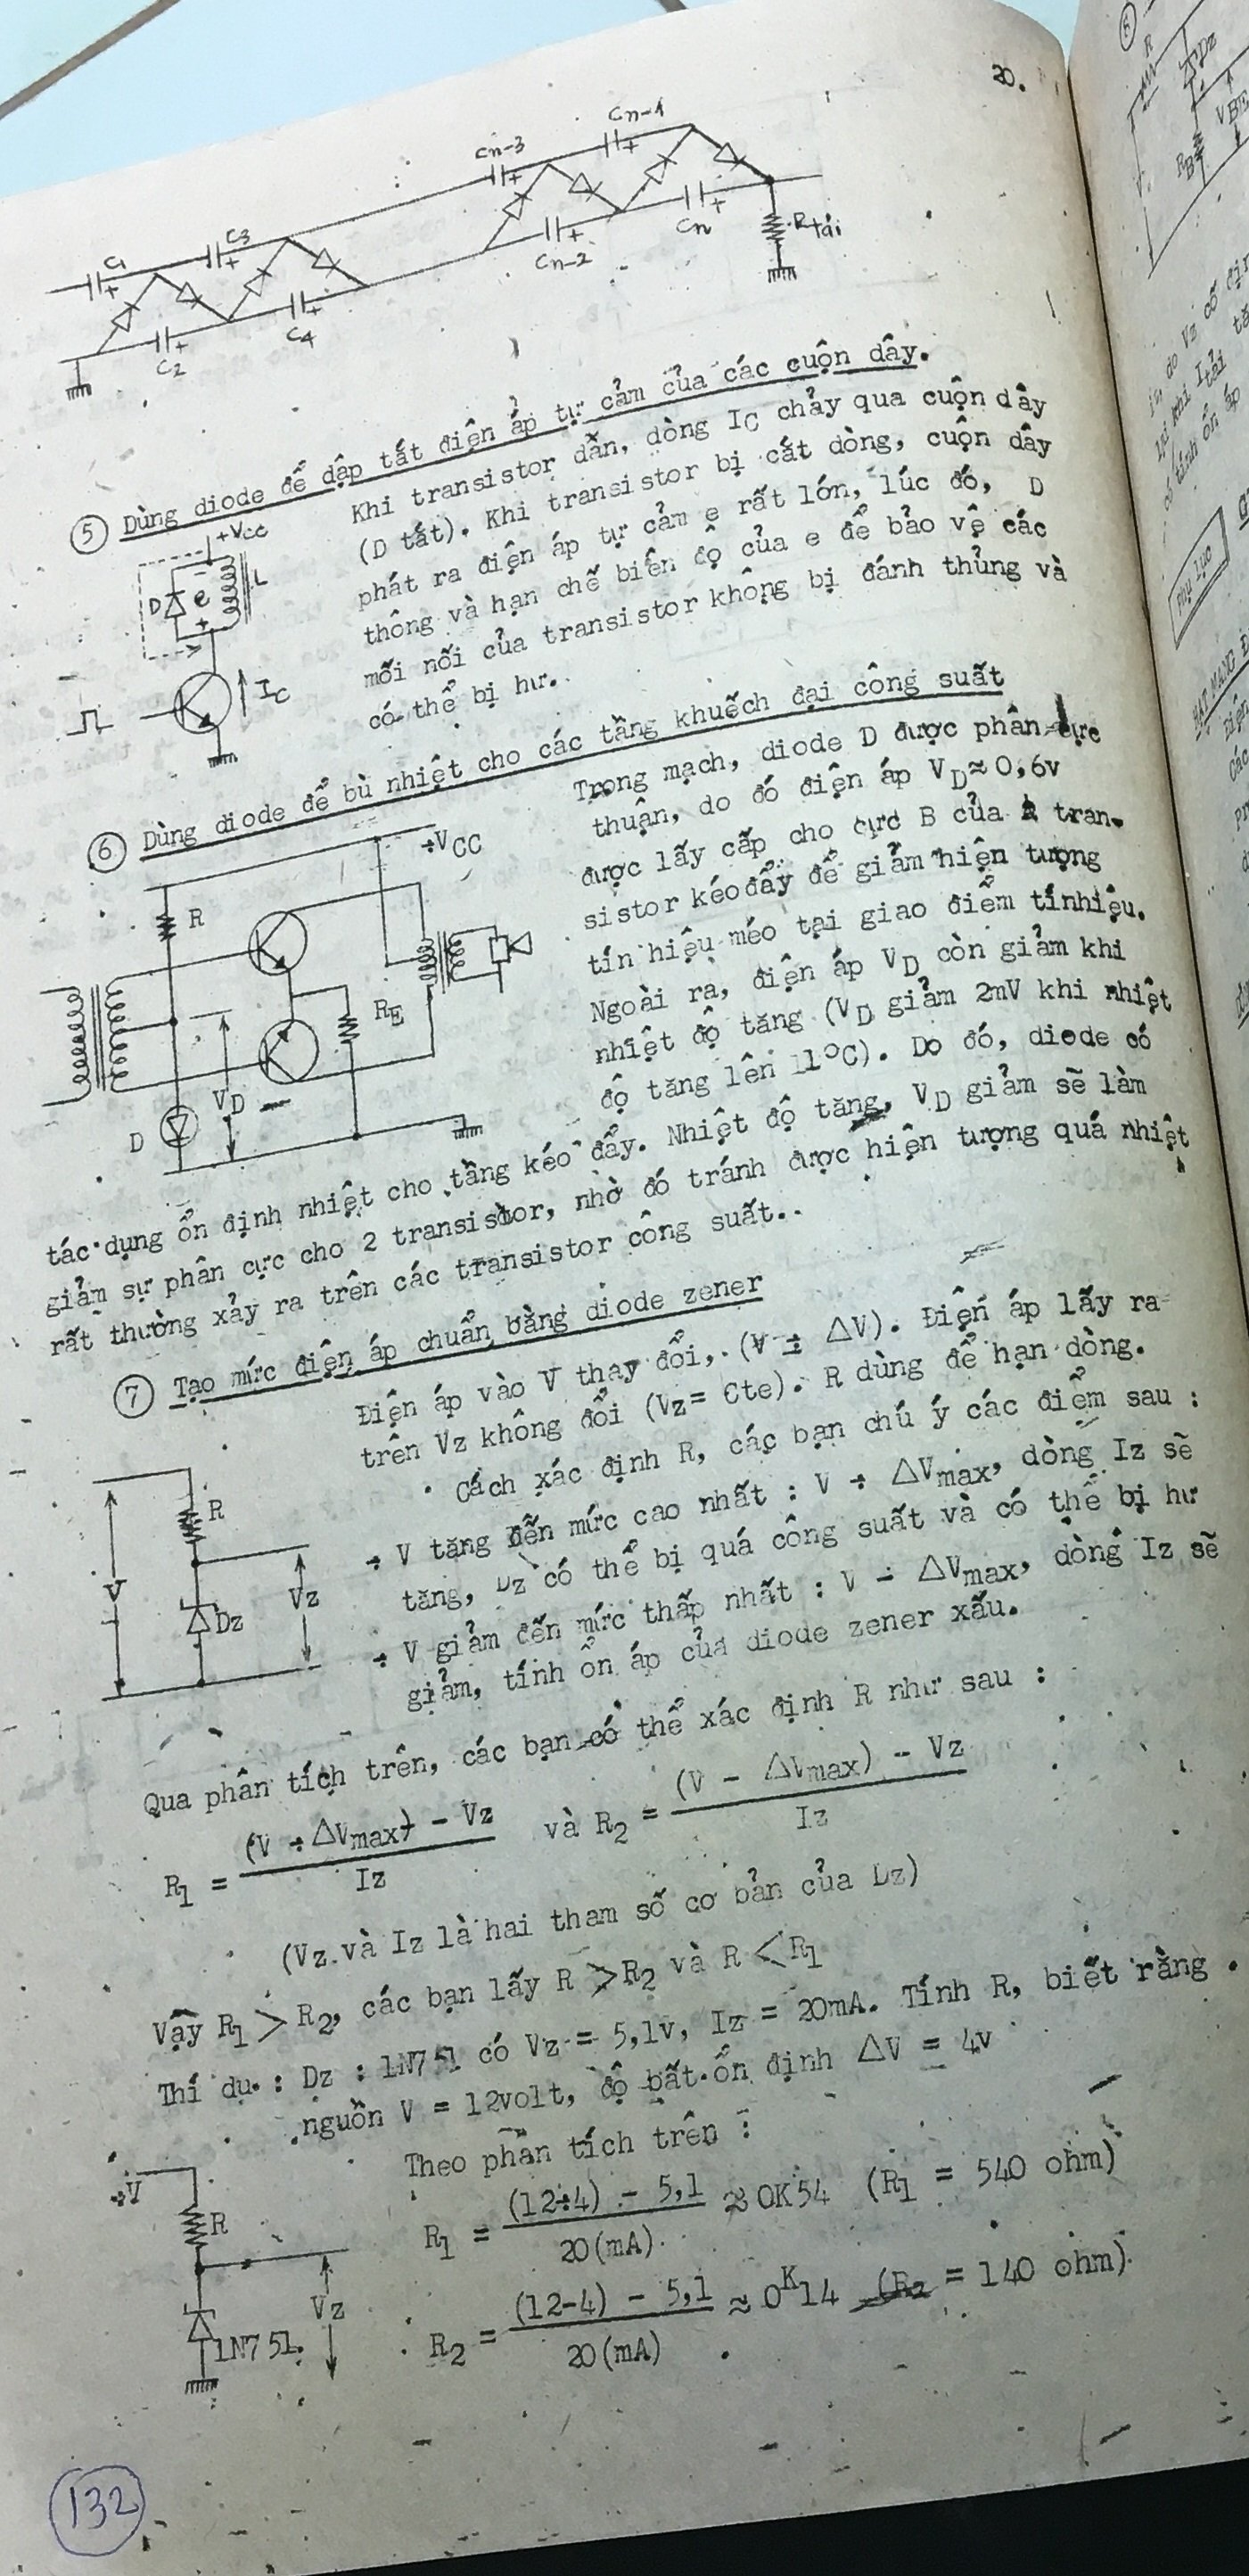 20.
C1
C3
Cn-3
Cn-1
C2
C4
Cn-2
Cn
Rtải
5 Dùng diode để dập tắt điện áp tự cảm của các cuộn dây.
Khi transistor dẫn, dòng IC chảy qua cuộn dây
(D tắt). Khi transistor bị cắt dòng, cuộn dây
phát ra điện áp tự cảm e rất lớn, lúc đó, D
thông và hạn chế biên độ của e để bảo vệ các
mối nối của transistor không bị đánh thủng và
có thể bị hư.
+VCC
D
e
L
IC
6 Dùng diode để bù nhiệt cho các tầng khuếch đại công suất
Trong mạch, diode D được phân cực
thuận, do đó điện áp VD≈0,6v
được lấy cấp cho cực B của 2 tran-
sistor kéo đẩy để giảm hiện tượng
tín hiệu méo tại giao điểm tínhiệu.
Ngoài ra, điện áp VD còn giảm khi
nhiệt độ tăng (VD giảm 2mV khi nhiệt
độ tăng lên 1°C). Do đó, diode có
tác dụng ổn định nhiệt cho tầng kéo đẩy. Nhiệt độ tăng, VD giảm sẽ làm
giảm sự phân cực cho 2 transistor, nhờ đó tránh được hiện tượng quá nhiệt
rất thường xảy ra trên các transistor công suất..
+VCC
R
RE
VD
D
7 Tạo mức điện áp chuẩn bằng diode zener
Điện áp vào V thay đổi, (V ± ΔV). Điện áp lấy ra
trên Vz không đổi (Vz= Cte). R dùng để hạn dòng.
Cách xác định R, các bạn chú ý các điểm sau :
+ V tăng đến mức cao nhất : V + ΔVmax, dòng Iz sẽ
tăng, Dz có thể bị quá công suất và có thể bị hư
+ V giảm đến mức thấp nhất : V - ΔVmax, dòng Iz sẽ
giảm, tính ổn áp của diode zener xấu.
R
V
Vz
Dz
Qua phân tích trên, các bạn có thể xác định R như sau :
R1 = (V + ΔVmax) - Vz / Iz và R2 = (V - ΔVmax) - Vz / Iz
(Vz và Iz là hai tham số cơ bản của Dz)
Vậy R1 > R2, các bạn lấy R > R2 và R < R1
Thí dụ : Dz : 1N751 có Vz = 5,1v, Iz = 20mA. Tính R, biết rằng
nguồn V = 12volt, độ bất ổn định ΔV = 4v
Theo phân tích trên :
R1 = (12+4) - 5,1 / 20(mA) ≈ 0K54 (R1 = 540 ohm)
R2 = (12-4) - 5,1 / 20(mA) ≈ 0K14 (R2 = 140 ohm)
+V
R
Vz
1N751
132
R
Dz
VBE
RB